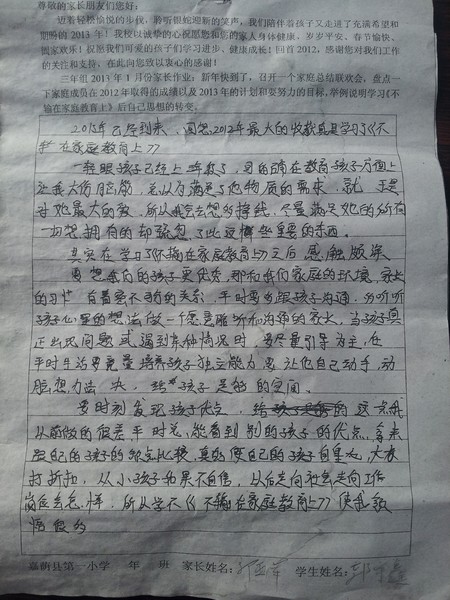 尊敬的家长朋友们您好:
迈着轻松愉悦的步伐,聆听银蛇迎新的笑声,我们陪伴着孩子又走进了充满希望和
期盼的 2013 年!我校以诚挚的心祝愿您和您的家人身体健康、岁岁平安、春节愉快、
阖家欢乐!祝愿我们可爱的孩子们学习进步、健康成长!回首 2012,感谢您对我们工作
的关注和支持,在此向您致以衷心的感谢!
三年组 2013 年 1 月份家长作业:新年快到了,召开一个家庭总结联欢会,盘点一
下家庭成员在 2012 年取得的成绩以及 2013 年的计划和要努力的目标,举例说明学习《不
输在家庭教育上》后自己思想的转变。
已经到来,回想2012年最大的收获就是学习了《不
输在家庭教育上》
一转眼孩子已经上年级了,的确在教育孩子方面上
让我大伤脑筋,总以为满足了她物质的需求,就是
对她最大的爱,所以我会去想多挣钱,尽量满足她的所有
一切想拥有的却疏忽了比这些重要的东西。
其实在学习了不输在家庭教育上以后感触颇深
要想我们的孩子更优秀,那和我们家庭的环境,家长
的习惯有着密不可的关系,平时要多跟孩子沟通,多听听
孩子心里的想法做一个愿意聆听和沟通的家长,当孩子真
正出现问题或遇到某种情况时,要尽量引导为主,在
平时生活要尽量培养孩子独立能力,让他自己动手,动
脑想办法 决,给孩子足够的空间。
要时刻发现孩子优点,这点我
从前做的很差平时总能看到别的孩子的优点,拿来
跟自己的孩子的缺点比较,真的使自己的孩子自尊心大大
打折扣,从小孩子如果不自信,以后走向社会走向工作
岗位会怎样,所以学《不输在家庭教育上》使我领
悟很多
嘉荫县第一小学 年 班 家长姓名: 学生姓名: